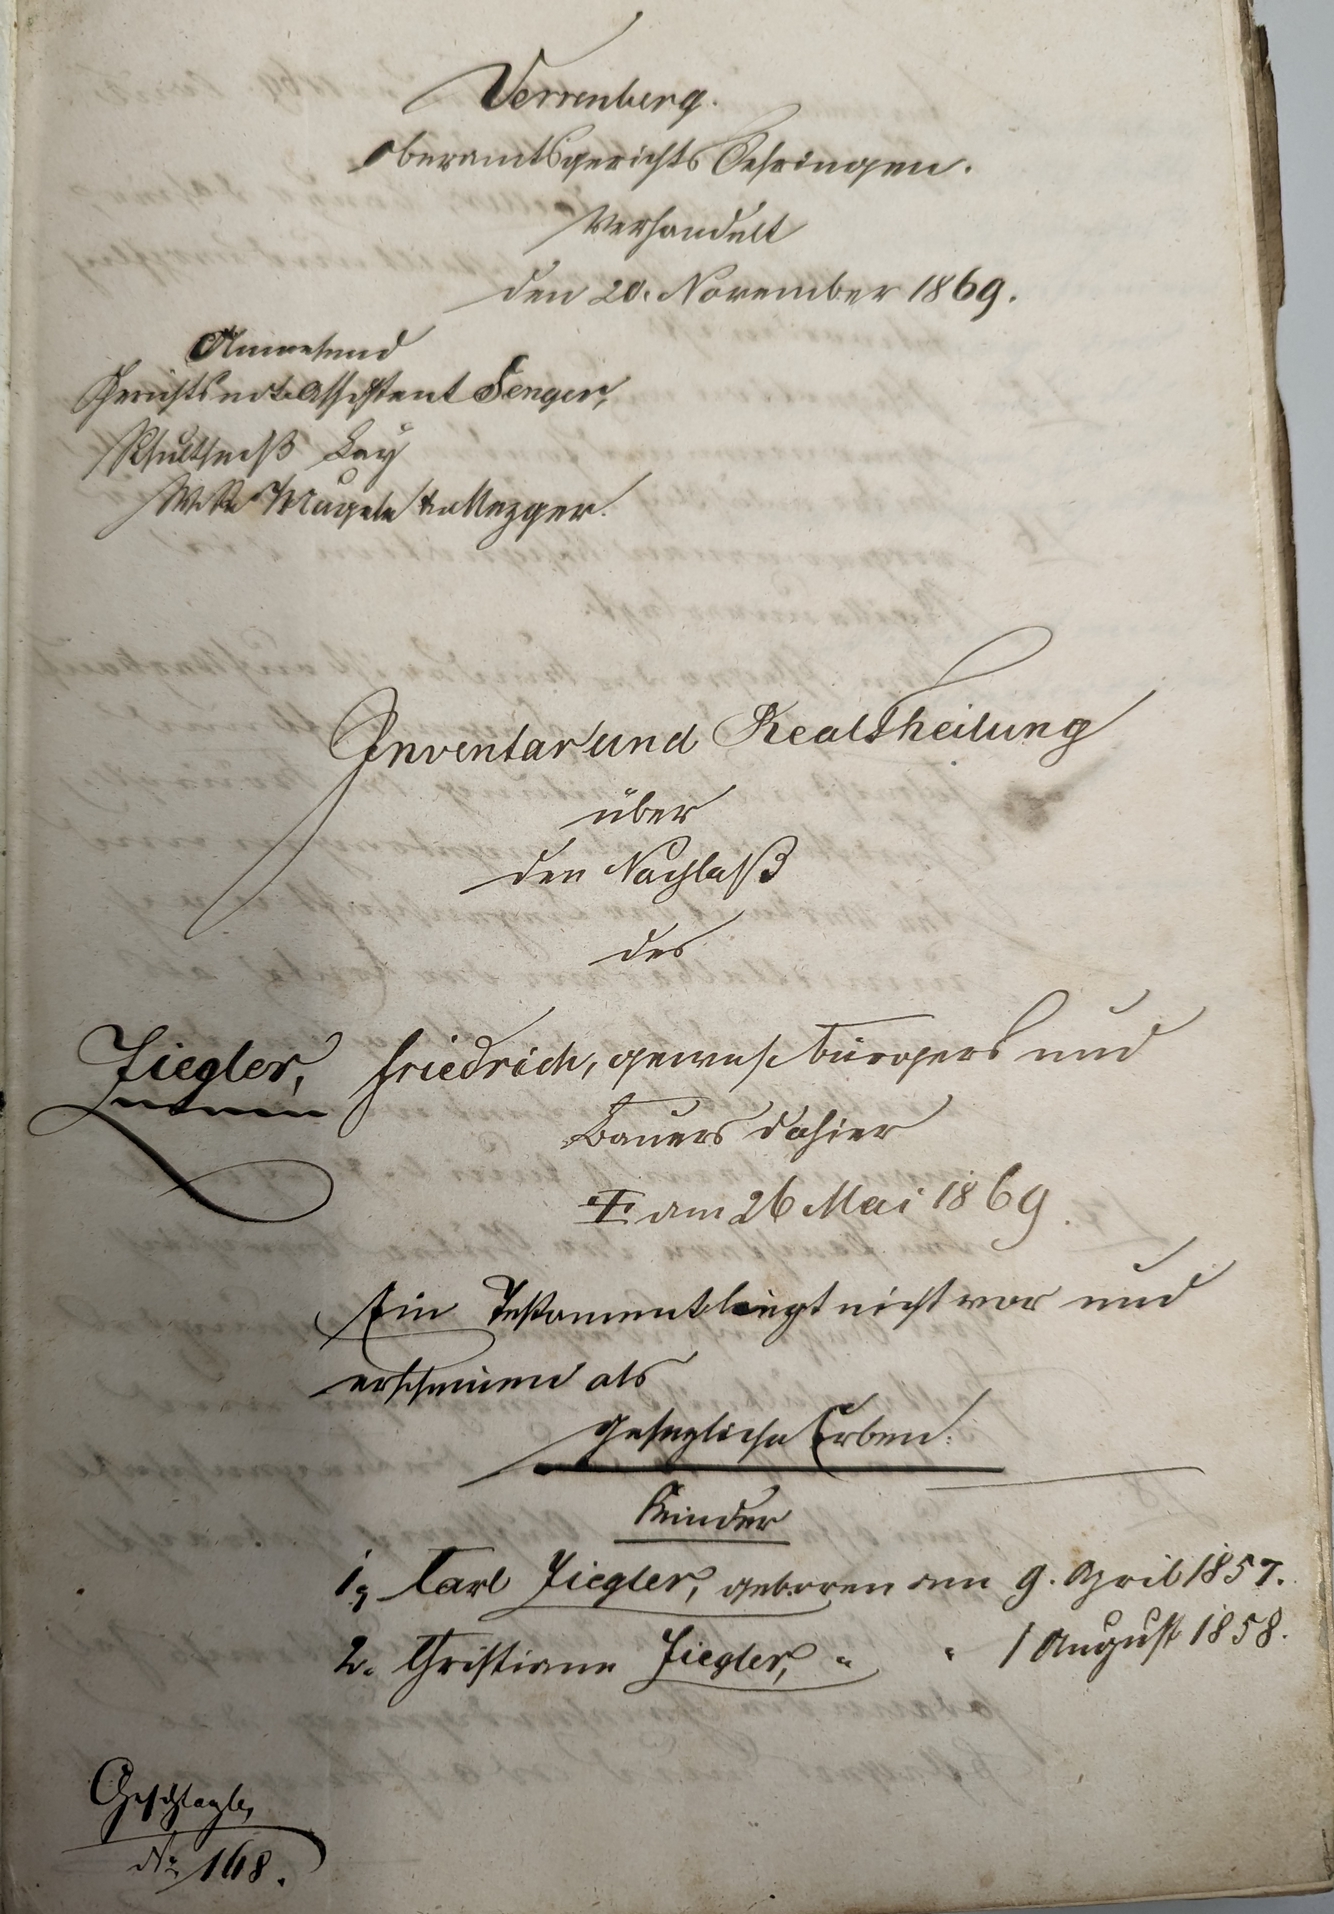 Verrenberg.
Oberamtsgerichts Oehringen.
Verhandelt
den 20. November 1869.
Anwesend
Gerichtsnot. Assistent Senger,
Schultheiß Lay
W. R. Mugele & Mezger.
Inventar und Realtheilung
über
den Nachlaß
des
Ziegler, Friedrich, gewes. Bürgers und
Bauers dahier
† am 26 Mai 1869.
Ein Testament liegt nicht vor und
erscheinen als
gesezliche Erben:
Kinder
1, Carl Ziegler, geboren am 9. April 1857.
2. Christiane Ziegler, " " 1 August 1858.
No. 168.